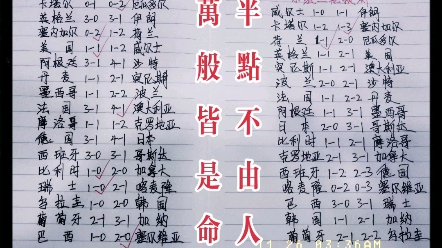 卡塔尔 0-1 0-2 厄瓜多尔
英格兰 3-0 3-1 伊朗
塞内加尔 0-1 0-2 荷兰
美国 1-1 威尔士
阿根廷 3-1 4-1 沙特
丹麦 2-1 3-1 突尼斯
墨西哥 1-1 2-2 波兰
法国 3-1 4-1 澳大利亚
摩洛哥 1-1 1-2 克罗地亚
德国 3-1 4-1 日本
西班牙 3-0 3-1 哥斯达
比利时 1-0 2-0 加拿大
瑞士 1-0 2-1 喀麦隆
乌拉圭 1-0 2-0 韩国
葡萄牙 2-1 3-1 加纳
巴西 1-0 2-0 塞尔维亚
萬般皆是命
平點不由人
威尔士 1-0 1-1 伊朗
卡塔尔 1-2 1-3 塞内加尔
荷兰 1-1 2-0
英格兰 1-1 2-1 美国
突尼斯 1-1 2-1 澳大利亚
波兰 2-0 2-1 沙特
法国 1-1 2-2 丹麦
阿根廷 1-1 3-1 墨西哥
日本 2-0 3-0 哥斯达
比利时 1-1 2-1 摩洛哥
克罗地亚 2-1 3-1 加拿大
西班牙 2-2 2-3 德国
喀麦隆 0-2 0-3 塞尔维亚
韩国 1-1 2-1 加纳
巴西 2-1 3-1 瑞士
葡萄牙 1-1 2-2 乌拉圭